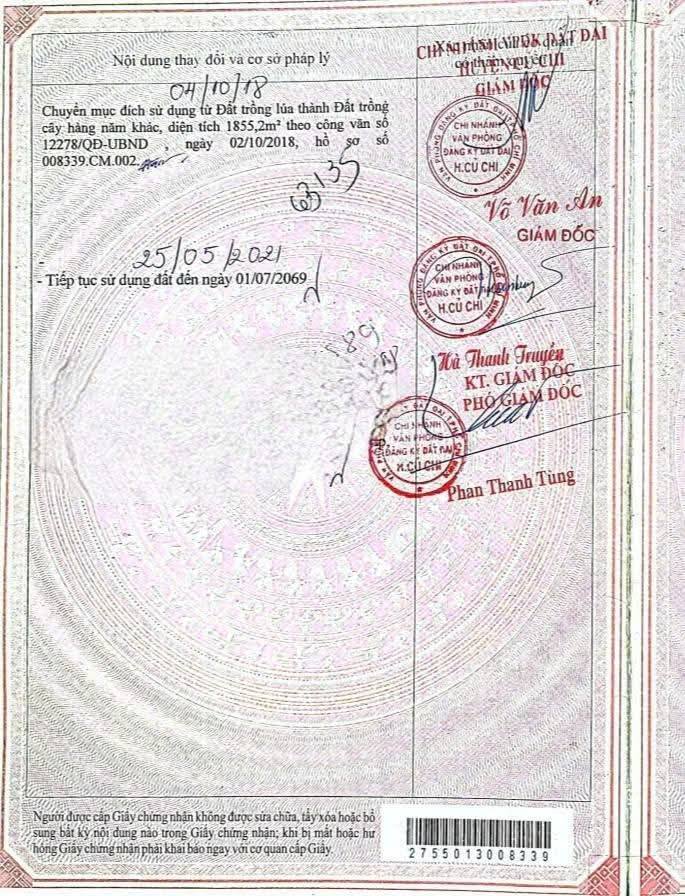 Nội dung thay đổi và cơ sở pháp lý
Xác nhận của cơ quan
có thẩm quyền
CHI NHÁNH VPĐK ĐẤT ĐAI
HUYỆN CỦ CHI
GIÁM ĐỐC
04/10/18
Chuyển mục đích sử dụng từ Đất trồng lúa thành Đất trồng
cây hàng năm khác, diện tích 1855,2m² theo công văn số
12278/QĐ-UBND , ngày 02/10/2018, hồ sơ số
008339.CM.002.
VĂN PHÒNG ĐĂNG KÝ ĐẤT ĐAI T.PHỐ HỒ CHÍ MINH
CHI NHÁNH
VĂN PHÒNG
ĐĂNG KÝ ĐẤT ĐAI
H.CỦ CHI
63135
Võ Văn An
GIÁM ĐỐC
25/05/2021
- Tiếp tục sử dụng đất đến ngày 01/07/2069
VĂN PHÒNG ĐĂNG KÝ ĐẤT ĐAI T.PHỐ HỒ CHÍ MINH
CHI NHÁNH
VĂN PHÒNG
ĐĂNG KÝ ĐẤT ĐAI
H.CỦ CHI
Hà Thanh Truyền
KT. GIÁM ĐỐC
PHÓ GIÁM ĐỐC
CHI NHÁNH
VĂN PHÒNG
ĐĂNG KÝ ĐẤT ĐAI
H.CỦ CHI
Phan Thanh Tùng
Người được cấp Giấy chứng nhận không được sửa chữa, tẩy xóa hoặc bổ
sung bất kỳ nội dung nào trong Giấy chứng nhận; khi bị mất hoặc hư
hỏng Giấy chứng nhận phải khai báo ngay với cơ quan cấp Giấy.
2755013008339